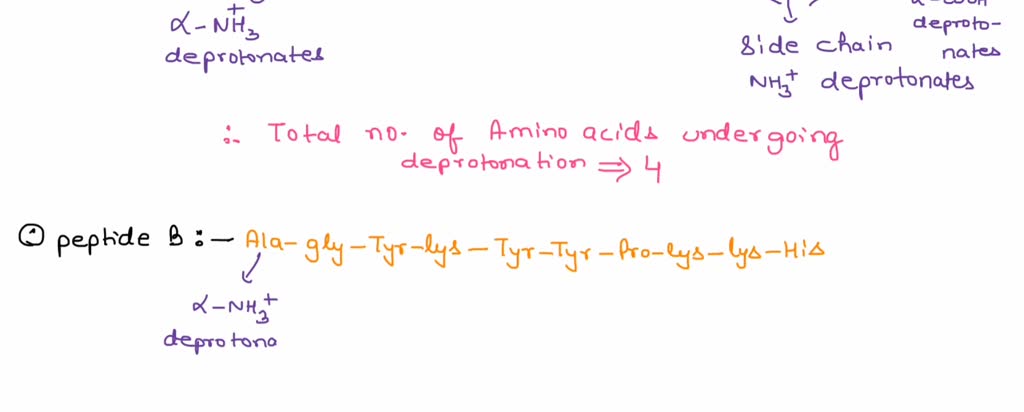 α-NH₃⁺
deprotonates
α-COOH
deproto-
nates
Side chain
NH₃⁺ deprotonates
∴ Total no. of Amino acids undergoing
deprotonation ⇒ 4
peptide B :- Ala-gly-Tyr-lys-Tyr-Tyr-Pro-lys-lys-His
α-NH₃⁺
deprotona